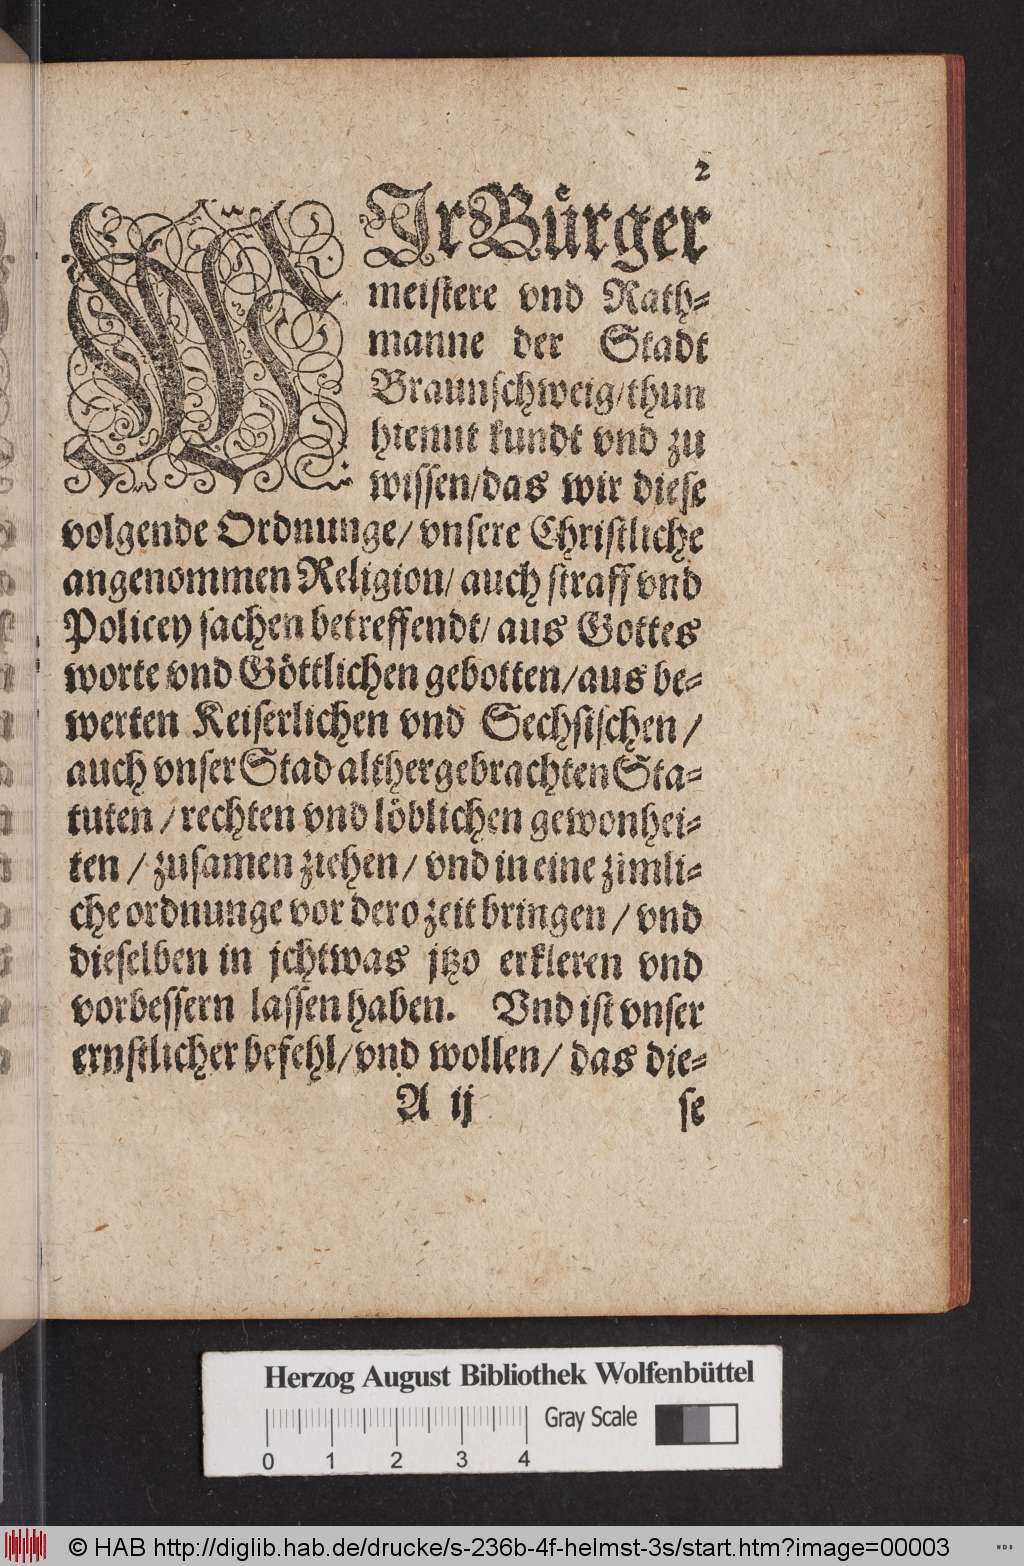 2
WIr Bürger
meistere vnd Rath-
manne der Stadt
Braunschweig/thun
hiemit kundt vnd zu
wissen/das wir diese
volgende Ordnunge/ vnsere Christliche
angenommen Religion/ auch straff vnd
Policey sachen betreffendt/ aus Gottes
worte vnd Göttlichen gebotten/aus be-
werten Keiserlichen vnd Sechsischen/
auch vnser Stad althergebrachten Sta-
tuten/rechten vnd löblichen gewonhei-
ten/zusamen ziehen/ vnd in eine zimli-
che ordnunge vor dero zeit bringen/ vnd
dieselben in jchtwas jtzo erkleren vnd
vorbessern lassen haben. Vnd ist vnser
ernstlicher befehl/vnd wollen/ das die-
A ij se
Herzog August Bibliothek Wolfenbüttel
Gray Scale
0 1 2 3 4
© HAB http://diglib.hab.de/drucke/s-236b-4f-helmst-3s/start.htm?image=00003